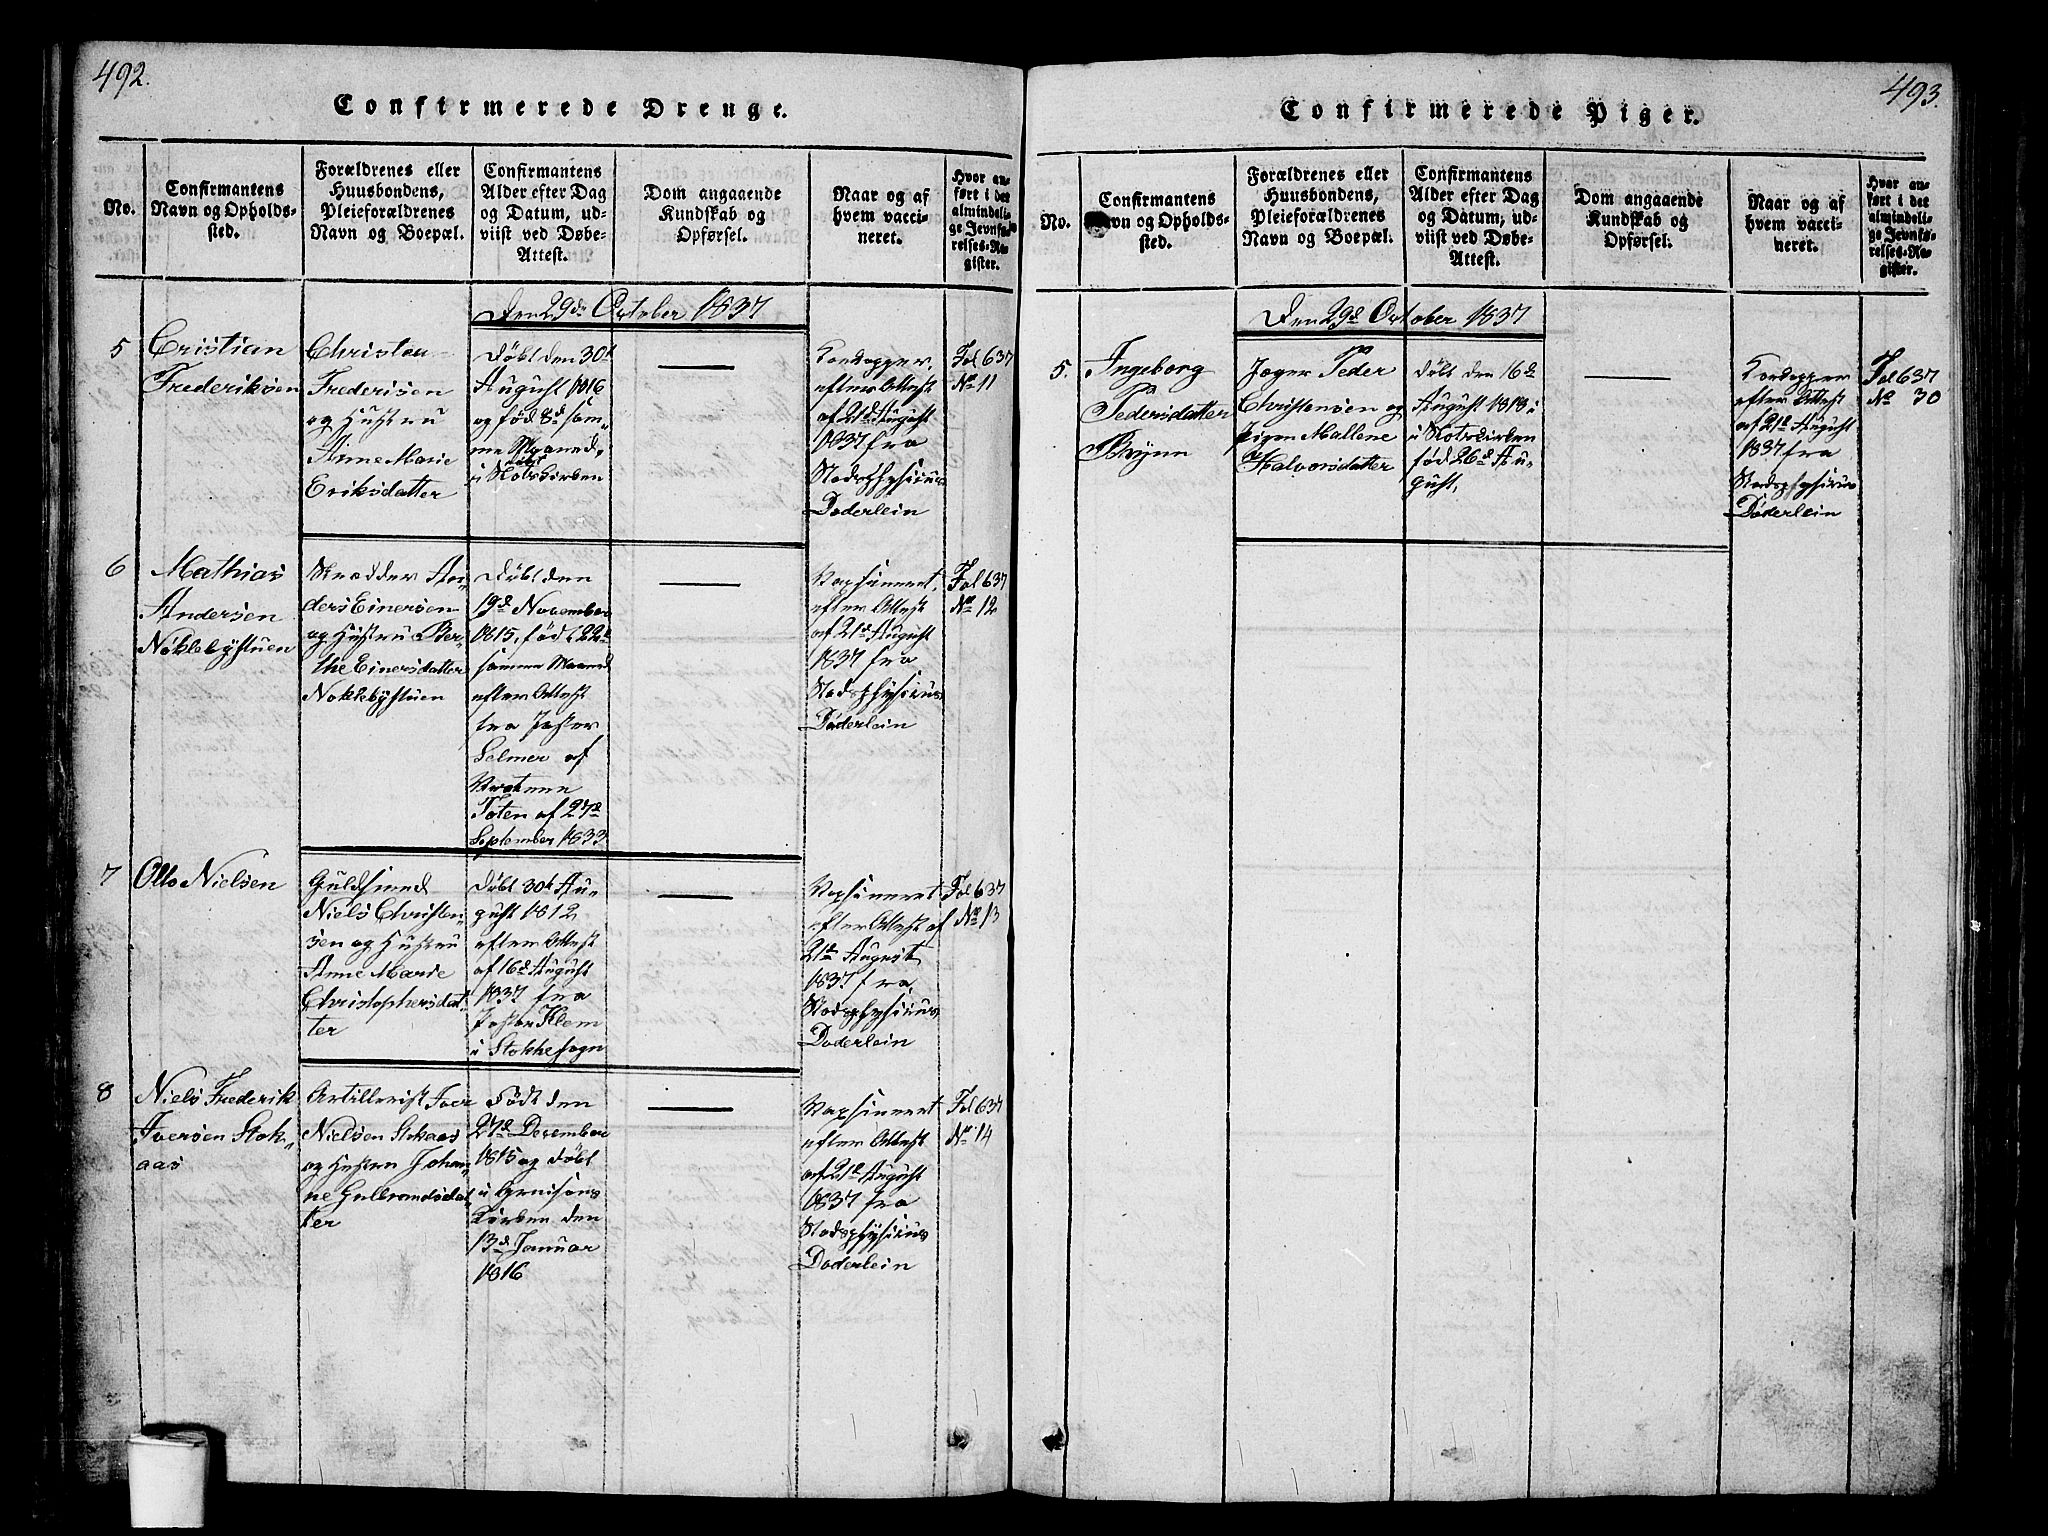 492.
Confirmerede Drenge.
No.
Confirmantens
Navn og Opholds-
sted.
Forældrenes eller
Huusbondens,
Pleieforældrenes
Navn og Boepæl.
Confirmantens
Alder efter Dag
og Datum, ud-
viist ved Døbe-
Attest.
Dom angaaende
Kundskab og
Opførsel.
Naar og af
hvem vacci-
neret.
Hvor an-
ført i det
almindeli-
ge Jevnfø-
relses-Re-
gister.
Den 29de October 1837
5
Cristian
Frederiksen
Christen
Frederisen
og Hustru
Anne Marie
Eriksdatter
Døbt den 30t
August 1816
og fød 8d sam-
me Maaned,
i Slotskirken
Kordopper,
efter Attest
af 21d August
1837 fra
Stadsphysicus
Doderlein
Fol 637
No 11
6
Mathias
Andersen
Nøklebystuen
Skrædder An-
ders Einersen
og Hustru Ber-
the Einersdatter
Nøklebystuen
Døbt den
19d November
1815, fød 22d
samme Maaned
efter Attest
fra Pastor
Selmer af
Vestenne
Toten af 27d
September 1833
Vaxsineret,
efter Attest
af 21d August
1837 fra
Stadsphysicus
Döderlein
Fol 637
No 12
7
Otto Nielsen
Guldsmed
Niels Christen-
sen og Hustru
Anne Marie
Christophersdat-
ter
Døbt 30t Au-
gust 1812
efter Attest
af 16d August
1837 fra
Pastor Klem
i Stokke sogn
Vaxsineret
efter Attest af
21d August
1837 fra
Stadsphysicus
Doderlein
Fol 637
No 13
8
Niels Frederik
Iversen Stok-
aas
Artillerist Iver
Nielsen Stokaas
og Hustru Johan-
ne Gulbrandsdat-
ter
Født den
27d December
1815 og Døbt
i Garnisons
Kirken den
13d Januar
1816
Vaxsineret
efter Attest
af 21d August
1837 fra
Stadsphysicus
Doderlein
Fol 637
No 14
493.
Confirmerede Piger.
No.
Confirmantens
Navn og Opholds-
sted.
Forældrenes eller
Huusbondens,
Pleieforældrenes
Navn og Boepæl.
Confirmantens
Alder efter Dag
og Datum, ud-
viist ved Døbe-
Attest.
Dom angaaende
Kundskab og
Opførsel.
Naar og af
hvem vacci-
neret.
Hvor an-
ført i det
almindeli-
ge Jevnfø-
relses-Re-
gister.
Den 29d October 1837
5.
Ingeborg
Pedersdatter
Bryn
Jæger Peder
Christensen og
Pigen Mallene
Halvorsdatter
Døbt den 16d
August 1818 i
i Slotskirken
fød 26d Au-
gust,
Kordopper
efter Attest
af 21d August
1837 fra
Stadsphysicus
Döderlein
Fol 637
No 30